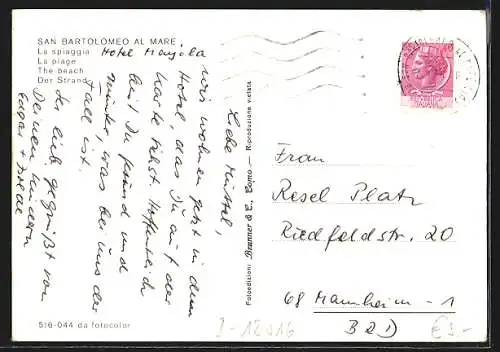 SAN BARTOLOMEO AL MARE
La spiaggia
La plage
The beach
Der Strand
Hotel Mayola
Liebe Mutter,
wir wohnen jetzt in dem
Hotel, das Du auf der
Karte siehst. Hoffentlich
bist Du gesund und
munter, was bei uns der
Fall ist.
Sei lieb gegrüßt von
Deinen Kindern
Edgar +
516-044 da fotocolor
Fotoedizioni Brunner & C., Como - Riproduzione vietata
REPUBBLICA
ITALIANA
Frau
Resel Platz
Riedfeldstr. 20
68 Mannheim - 1
BRD
I-12916
€3.-